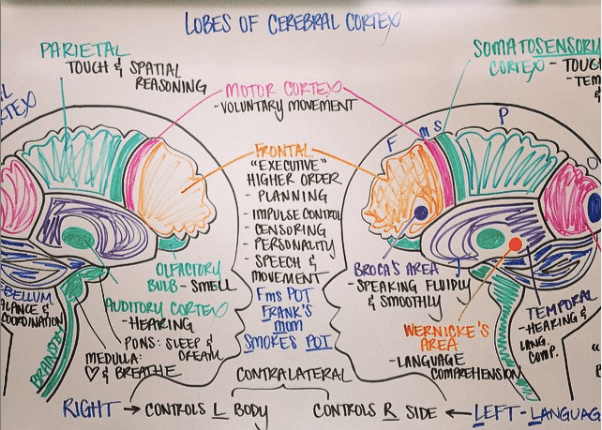 LOBES OF CEREBRAL CORTEX
PARIETAL
TOUCH & SPATIAL
REASONING
AL
RTEX
MOTOR CORTEX
-VOLUNTARY MOVEMENT
SOMATOSENSORY
CORTEX - TOUC
- TEM
&
FRONTAL
"EXECUTIVE"
HIGHER ORDER
- PLANNING
- IMPULSE CONTROL
CENSORING
- PERSONALITY
- SPEECH &
MOVEMENT
FmS POT
FRANK'S
mom
SMOKES POT
F m S P O
T
OLFACTORY
BULB - SMELL
AUDITORY CORTEX
- HEARING
PONS: SLEEP &
DREAM
MEDULLA:
♡ & BREATHE
BRAINSTEM
-BELLUM
ALANCE &
COORDINATION
BROCA'S AREA
- SPEAKING FLUIDLY
& SMOOTHLY
WERNICKE'S
AREA
-LANGUAGE
COMPREHENSION
TEMPORAL
-HEARING &
LANG.
COMP.
CONTRALATERAL
RIGHT → CONTROLS L BODY
CONTROLS R SIDE ← LEFT - LANGUAG